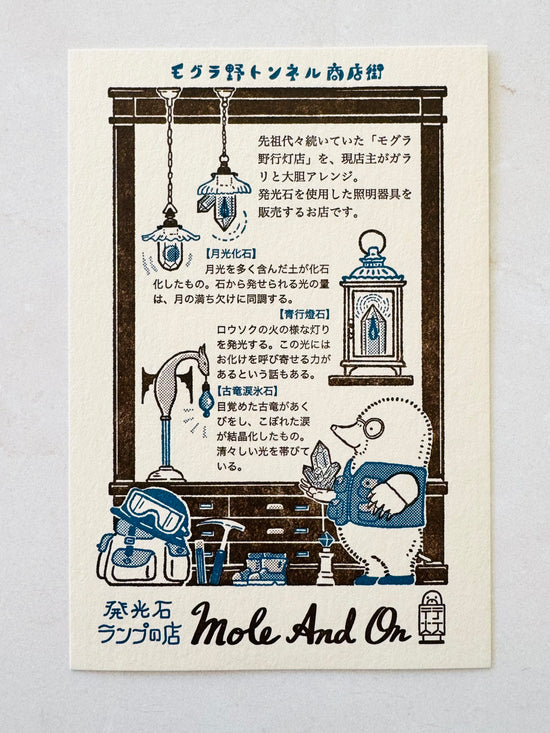 モグラ野トンネル商店街
先祖代々続いていた「モグラ
野行灯店」を、現店主がガラ
リと大胆アレンジ。
発光石を使用した照明器具を
販売するお店です。
【月光化石】
月光を多く含んだ土が化石
化したもの。石から発せられる光の量
は、月の満ち欠けに同調する。
【青行燈石】
ロウソクの火の様な灯り
を発光する。この光には
お化けを呼び寄せる力が
あるという話もある。
【古竜涙氷石】
目覚めた古竜があく
びをし、こぼれた涙
が結晶化したもの。
清々しい光を帯びて
いる。
発光石
ランプの店
Mole And On